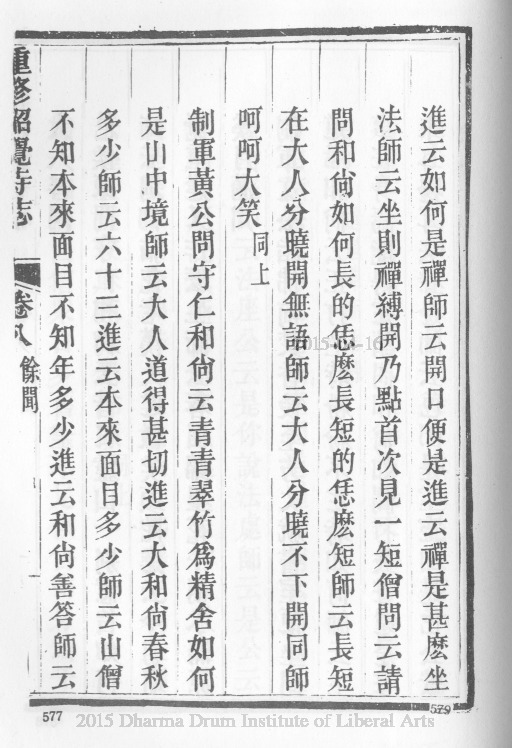 進云如何是禪師云開口便是進云禪是甚麽坐
法師云坐則禪縛開乃點首次見一短僧問云請
問和尙如何長的恁麽長短的恁麽短師云長短
在大人分曉開無語師云大人分曉不下開同師
呵呵大笑同上
制軍黃公問守仁和尙云靑靑翠竹爲精舍如何
是山中境師云大人道得甚切進云大和尙春秋
多少師云六十三進云本來面目多少師云山僧
不知本來面目不知年多少進云和尙善答師云
重修昭覺寺志 卷八 餘聞
577
579
2015 Dharma Drum Institute of Liberal Arts